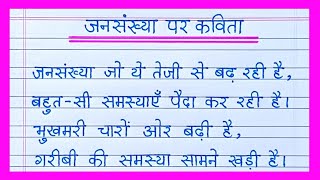 जनसंख्या पर कविता
जनसंख्या जो ये तेजी से बढ़ रही है,
बहुत-सी समस्याएँ पैदा कर रही है।
भुखमरी चारों ओर बढ़ी है,
गरीबी की समस्या सामने खड़ी है।